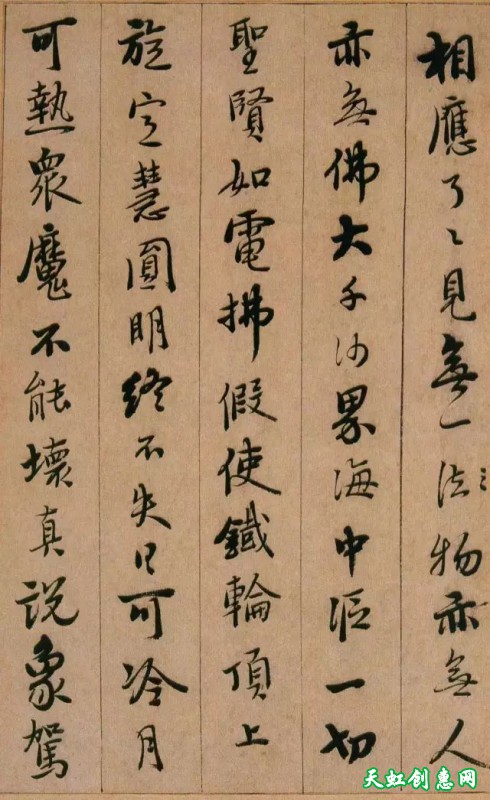 相應了〻見無一法物亦無人
亦無佛大千沙界海中漚一切
聖賢如電拂假使鐵輪頂上
旋定慧圓明終不失日可冷月
可熱衆魔不能壞真說象駕
天虹创惠网